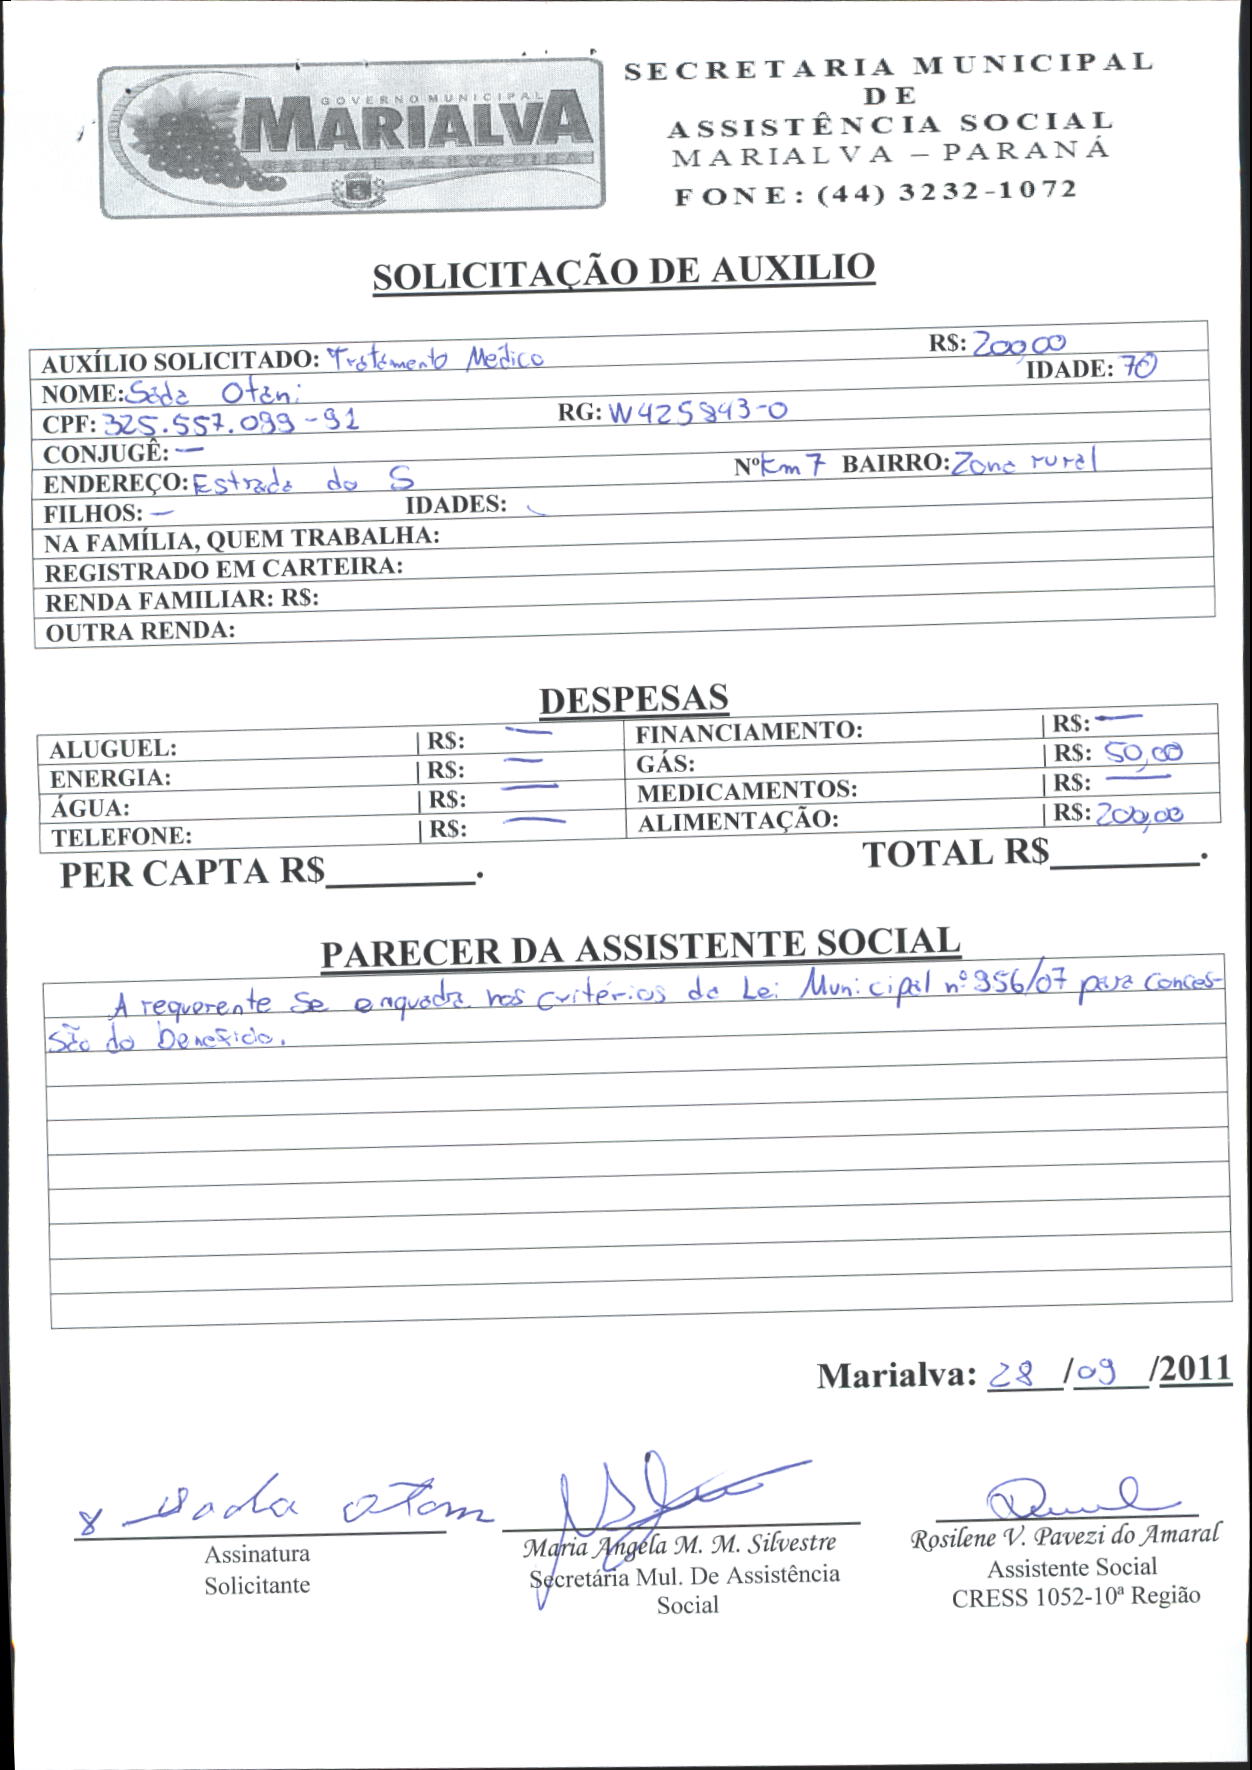 GOVERNO MUNICIPAL
MARIALVA
CAPITAL DA UVA FINA
SECRETARIA MUNICIPAL
DE
ASSISTÊNCIA SOCIAL
MARIALVA – PARANÁ
FONE: (44) 3232-1072
SOLICITAÇÃO DE AUXILIO
AUXÍLIO SOLICITADO: Tratamento Médico R$: 200,00
NOME: Sada Otani IDADE: 70
CPF: 325.557.099-91 RG: W425843-0
CONJUGÊ: —
ENDEREÇO: Estrada do S Nº Km 7 BAIRRO: Zona rural
FILHOS: — IDADES:
NA FAMÍLIA, QUEM TRABALHA:
REGISTRADO EM CARTEIRA:
RENDA FAMILIAR: R$:
OUTRA RENDA:
DESPESAS
ALUGUEL: | R$: — FINANCIAMENTO: | R$: —
ENERGIA: | R$: — GÁS: | R$: 50,00
ÁGUA: | R$: — MEDICAMENTOS: | R$: —
TELEFONE: | R$: — ALIMENTAÇÃO: | R$: 200,00
PER CAPTA R$________. TOTAL R$________.
PARECER DA ASSISTENTE SOCIAL
A requerente se enquadra nos critérios da Lei Municipal nº 956/07 para conces-
são do benefício.
Marialva: 28 /09 /2011
x Sada Otani
Assinatura
Solicitante
Maria Angela M. M. Silvestre
Secretária Mul. De Assistência
Social
Rosilene V. Pavezi do Amaral
Assistente Social
CRESS 1052-10ª Região